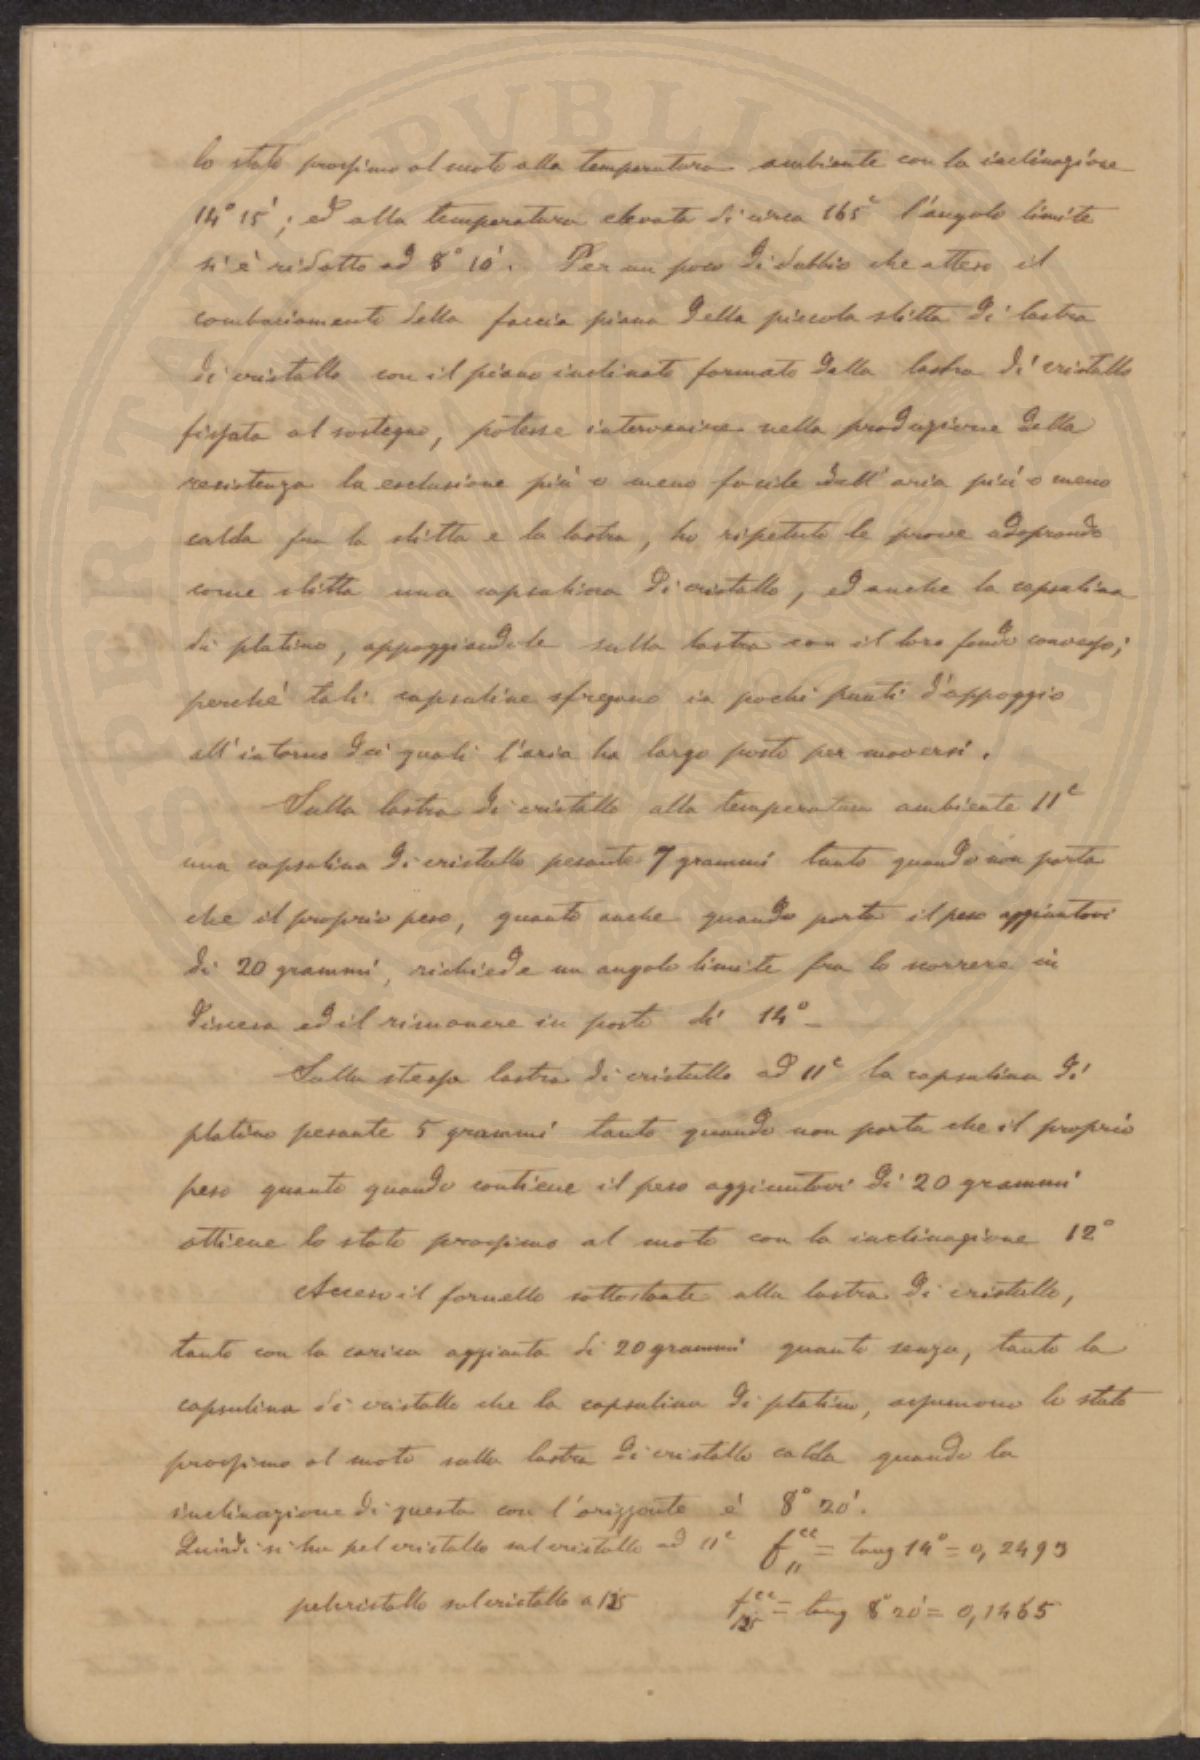 lo stato prossimo al moto alla temperatura ambiente con la inclinazione
14° 15'; ed alla temperatura elevata di circa 165ᶜ l'angolo limite
si è ridotto ad 8° 10'. Per un poco di dubbio che atteso il
combaciamento della faccia piana della piccola slitta di lastra
di cristallo con il piano inclinato formato dalla lastra di cristallo
fissata al sostegno, potesse intervenire nella produzione della
resistenza la esclusione più o meno facile dell'aria più o meno
calda fra la slitta e la lastra, ho ripetuto le prove adoprando
come slitta una capsulina di cristallo, ed anche la capsulina
di platino, appoggiandole sulla lastra con il loro fondo convesso;
perché tali capsuline sfregano in pochi punti d'appoggio
all'intorno dei quali l'aria ha largo posto per moversi.
Sulla lastra di cristallo alla temperatura ambiente 11ᶜ
una capsulina di cristallo pesante 7 grammi tanto quando non porta
che il proprio peso, quanto anche quando porta il peso aggiuntovi
di 20 grammi, richiede un angolo limite fra lo scorrere in
discesa ed il rimanere in posto di 14°
Sulla stessa lastra di cristallo ad 11ᶜ la capsulina di
platino pesante 5 grammi tanto quando non porta che il proprio
peso quanto quando contiene il peso aggiuntovi di 20 grammi
ottiene lo stato prossimo al moto con la inclinazione 12°
Acceso il fornello sottostante alla lastra di cristallo,
tanto con la carica aggiunta di 20 grammi quanto senza, tanto la
capsulina di cristallo che la capsulina di platino, assumono lo stato
prossimo al moto sulla lastra di cristallo calda quando la
inclinazione di questa con l'orizzonte è 8° 20'.
Quindi si ha pel cristallo sul cristallo ad 11ᶜ f ᶜᶜ ₁₁ = tang 14° = 0,2493
pel cristallo sul cristallo a f ᶜᶜ = tang 8° 20' = 0,1465
SPERITAT PVBLICA